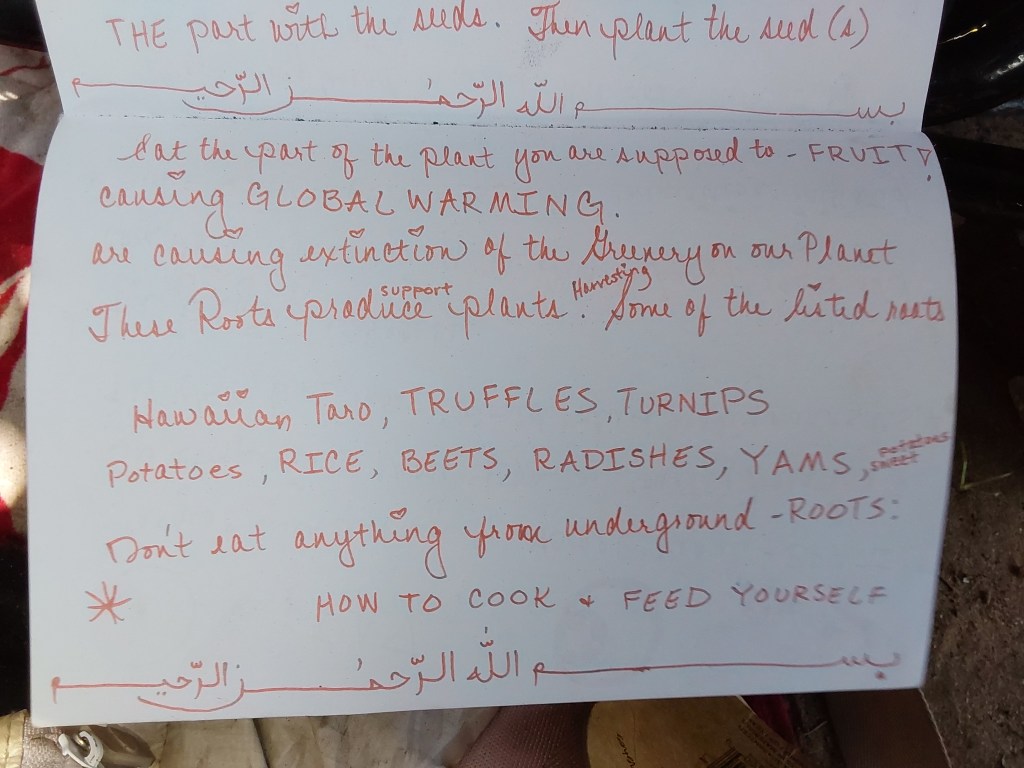 THE part with the seeds. Then plant the seed (s)
بســـــم اللّه الرّحمٰـــــن الرّحيـــــم
Eat the part of the plant you are supposed to - FRUIT!
causing GLOBAL WARMING.
are causing extinction of the Greenery on our Planet
These Roots produce support plants. Harvesting Some of the listed roots
Hawaiian Taro, TRUFFLES, TURNIPS
Potatoes, RICE, BEETS, RADISHES, YAMS, sweet potatoes
Don't eat anything from underground - ROOTS:
* HOW TO COOK & FEED YOURSELF
بســـــم اللّٰه الرّحمٰـــــن الرّحيـــــم